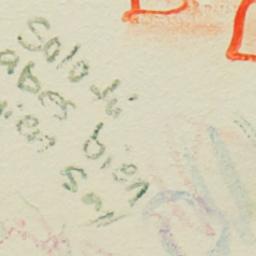 Solo tú
abes bien
ien soy